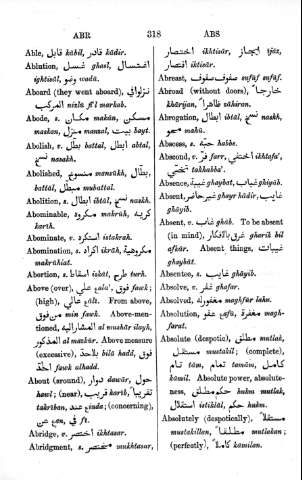 ABR 318 ABS
Able, قابل kābil, قادر kādir.
Ablution, s. اغتسال ghasl,
ightisāl, وضو wadū.
Aboard (they went aboard), نزلوا في
المركب nizlu fī'l markab.
Abode, s. مكان makān, مسكن
maskan, منزل manzal, بيت bayt.
Abolish, v. بطل battal, ابطل abtal,
نسخ nasakh.
Abolished, منسوخ mansūkh, بطال
battāl, مبطل mubattal.
Abolition, s. ابطال ibtāl, نسخ naskh.
Abominable, مكروه makrūh, كريه
karīh.
Abominate, v. استكره istakrah.
Abomination, s. اكراه ikrāh, مكروهية
makrūhīat.
Abortion, s. اسقاط iskāt, طرح tarh.
Above (over), على 'ala', فوق fawk;
(high), عالي 'ālī. From above,
من فوق min fawk. Above-men-
tioned, المشار اليه al mushār ilayh,
المذكور al mazkūr. Above measure
(excessive), بلا حد bilā hadd, فوق
الحد fawk alhadd.
About (around), دوار dawār, حول
hawl; (near), قريب karīb, تقريباً
takrīban, عند 'inda; (concerning),
عن 'an, في fī.
Abridge, v. اختصر ikhtasar.
Abridgment, s. مختصر mukhtasar,
اختصار ikhtisār, ايجاز ījāz,
اقتصار iktisār.
Abreast, صفوف صفوف sufūf sufūf.
Abroad (without doors), خارجاً
khārijan, ظاهراً zāhiran.
Abrogation, ابطال ibtāl, نسخ naskh,
محو mahū.
Abscess, s. حبة habbe.
Abscond, v. فر farr, اختفى ikhtafa',
تخبى takhabba'.
Absence, غيبة ghaybat, غياب ghiyāb.
Absent, غير حاضر ghayr hādir, غايب
ghāyib.
Absent, v. غاب ghāb. To be absent
(in mind), غرق بالافكار gharik bil
afkār. Absent things, غيبات
ghaybāt.
Absentee, s. غايب ghāyib.
Absolve, v. غفر ghafar.
Absolved, مغفور له maghfūr lahu.
Absolution, عفو 'afū, مغفرة magh-
farat.
Absolute (despotic), مطلق mutlak,
مستقل mustakil; (complete),
تام tām, تمام tamām, كامل
kāmil. Absolute power, absolute-
ness, حكم مطلق hukm mutlak,
استقلال istiklāl, حكم hukm.
Absolutely (despotically), مستقلاً
mustakillan, مطلقاً mutlakan;
(perfectly), كاملاً kāmilan.